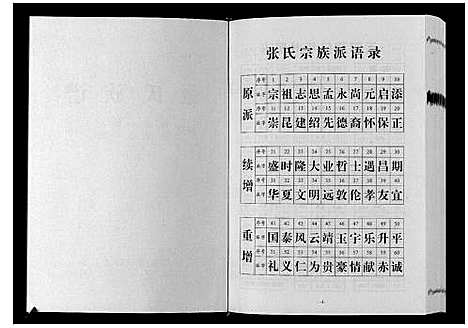 张氏宗族派语录
原派
序号 1 2 3 4 5 6 7 8 9 10
派字 宗 祖 志 思 孟 永 尚 元 启 添
序号 11 12 13 14 15 16 17 18 19 20
派字 崇 昆 建 绍 先 德 裔 怀 保 正
续增
序号 21 22 23 24 25 26 27 28 29 30
派字 盛 时 隆 大 业 哲 士 遇 昌 期
序号 31 32 33 34 35 36 37 38 39 40
派字 华 夏 文 明 远 敦 伦 孝 友 宜
重增
序号 41 42 43 44 45 46 47 48 49 50
派字 国 泰 风 云 靖 玉 宇 乐 升 平
序号 51 52 53 54 55 56 57 58 59 60
派字 礼 义 仁 为 贵 豪 情 献 赤 诚